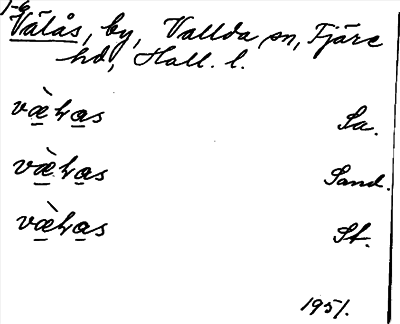 1-6
Välås, by, Vallda sn, Fjäre
hd, Hall. l.
væ̀ɫas Sa.
væ̀ɫas Sand.
væ̀ɫas St.
1951.